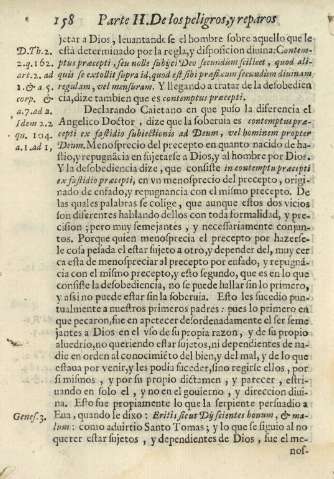 158 Parte II. De los peligros, y reparos
jetar a Dios, leuantandose el hombre sobre aquello que le
D. Th. 2. està determinado por la regla, y disposicion diuina: Contem-
2. q. 162. ptus præcepti, seu nolle subijci Deo secundum scilicet, quod ali-
art. 2. ad quis se extollit supra id, quod est sibi præfixum secundum diuinam
1. & a 5. regulam, vel mensuram. Y llegando a tratar de la desobedien
corp. & cia, dize tambien que es contemptus præcepti.
a. 7. ad 2. Declarando Caietano en que puso la diferencia el
Idem 2. 2 Angelico Doctor, dize que la soberuia es contemptus præ-
qn. 104. cepti ex fastidio subiectionis ad Deum, vel hominem propter
a. 1. ad 1, Deum. Menosprecio del precepto en quanto nacido de has-
stio, y repugnãcia en sujetarse a Dios, y al hombre por Dios.
Y la desobediencia dize, que consiste in contemptu præcepti
ex fastidio præcepti, en vn menosprecio del precepto, origi-
nado de enfado, y repugnancia con el mismo precepto. De
las quales palabras se colige, que aunque estos dos vicios
son diferentes hablando dellos con toda formalidad, y pre-
cision; pero muy semejantes, y necessariamente conjun-
tos. Porque quien menosprecia el precepto por hazerse-
le cosa pesada el estar sujeto a otro, y depender del, muy cer
ca esta de menospreciar al precepto por enfado, y repugnã-
cia con el mismo precepto, y esto segundo, que es en lo que
consiste la desobediencia, no se puede hallar sin lo primero,
y assi no puede estar sin la soberuia. Esto les sucedio pun-
tualmente a nuestros primeros padres: pues lo primero en
que pecaron, fue en apetecer desordenadamente el ser seme-
jantes a Dios en el vso de su propia razon, y de su propio
aluedrio, no queriendo estar sujetos, ni dependientes de na-
die en orden al conocimiẽto del bien, y del mal, y de lo que
estaua por venir, y les podia suceder, sino regirse ellos, por
si mismos, y por su propio dictamen, y parecer, estri-
uando en solo el, y no en el gouierno, y direccion diui-
na. Esto fue propiamente lo que la serpiente persuadio a
Genes. 3. Eua, quando le dixo: Eritis sicut Dij scientes bonum, & ma-
lum: como aduirtio Santo Tomas; y lo que se siguio al no
querer estar sujetos, y dependientes de Dios, fue el me-
nos-